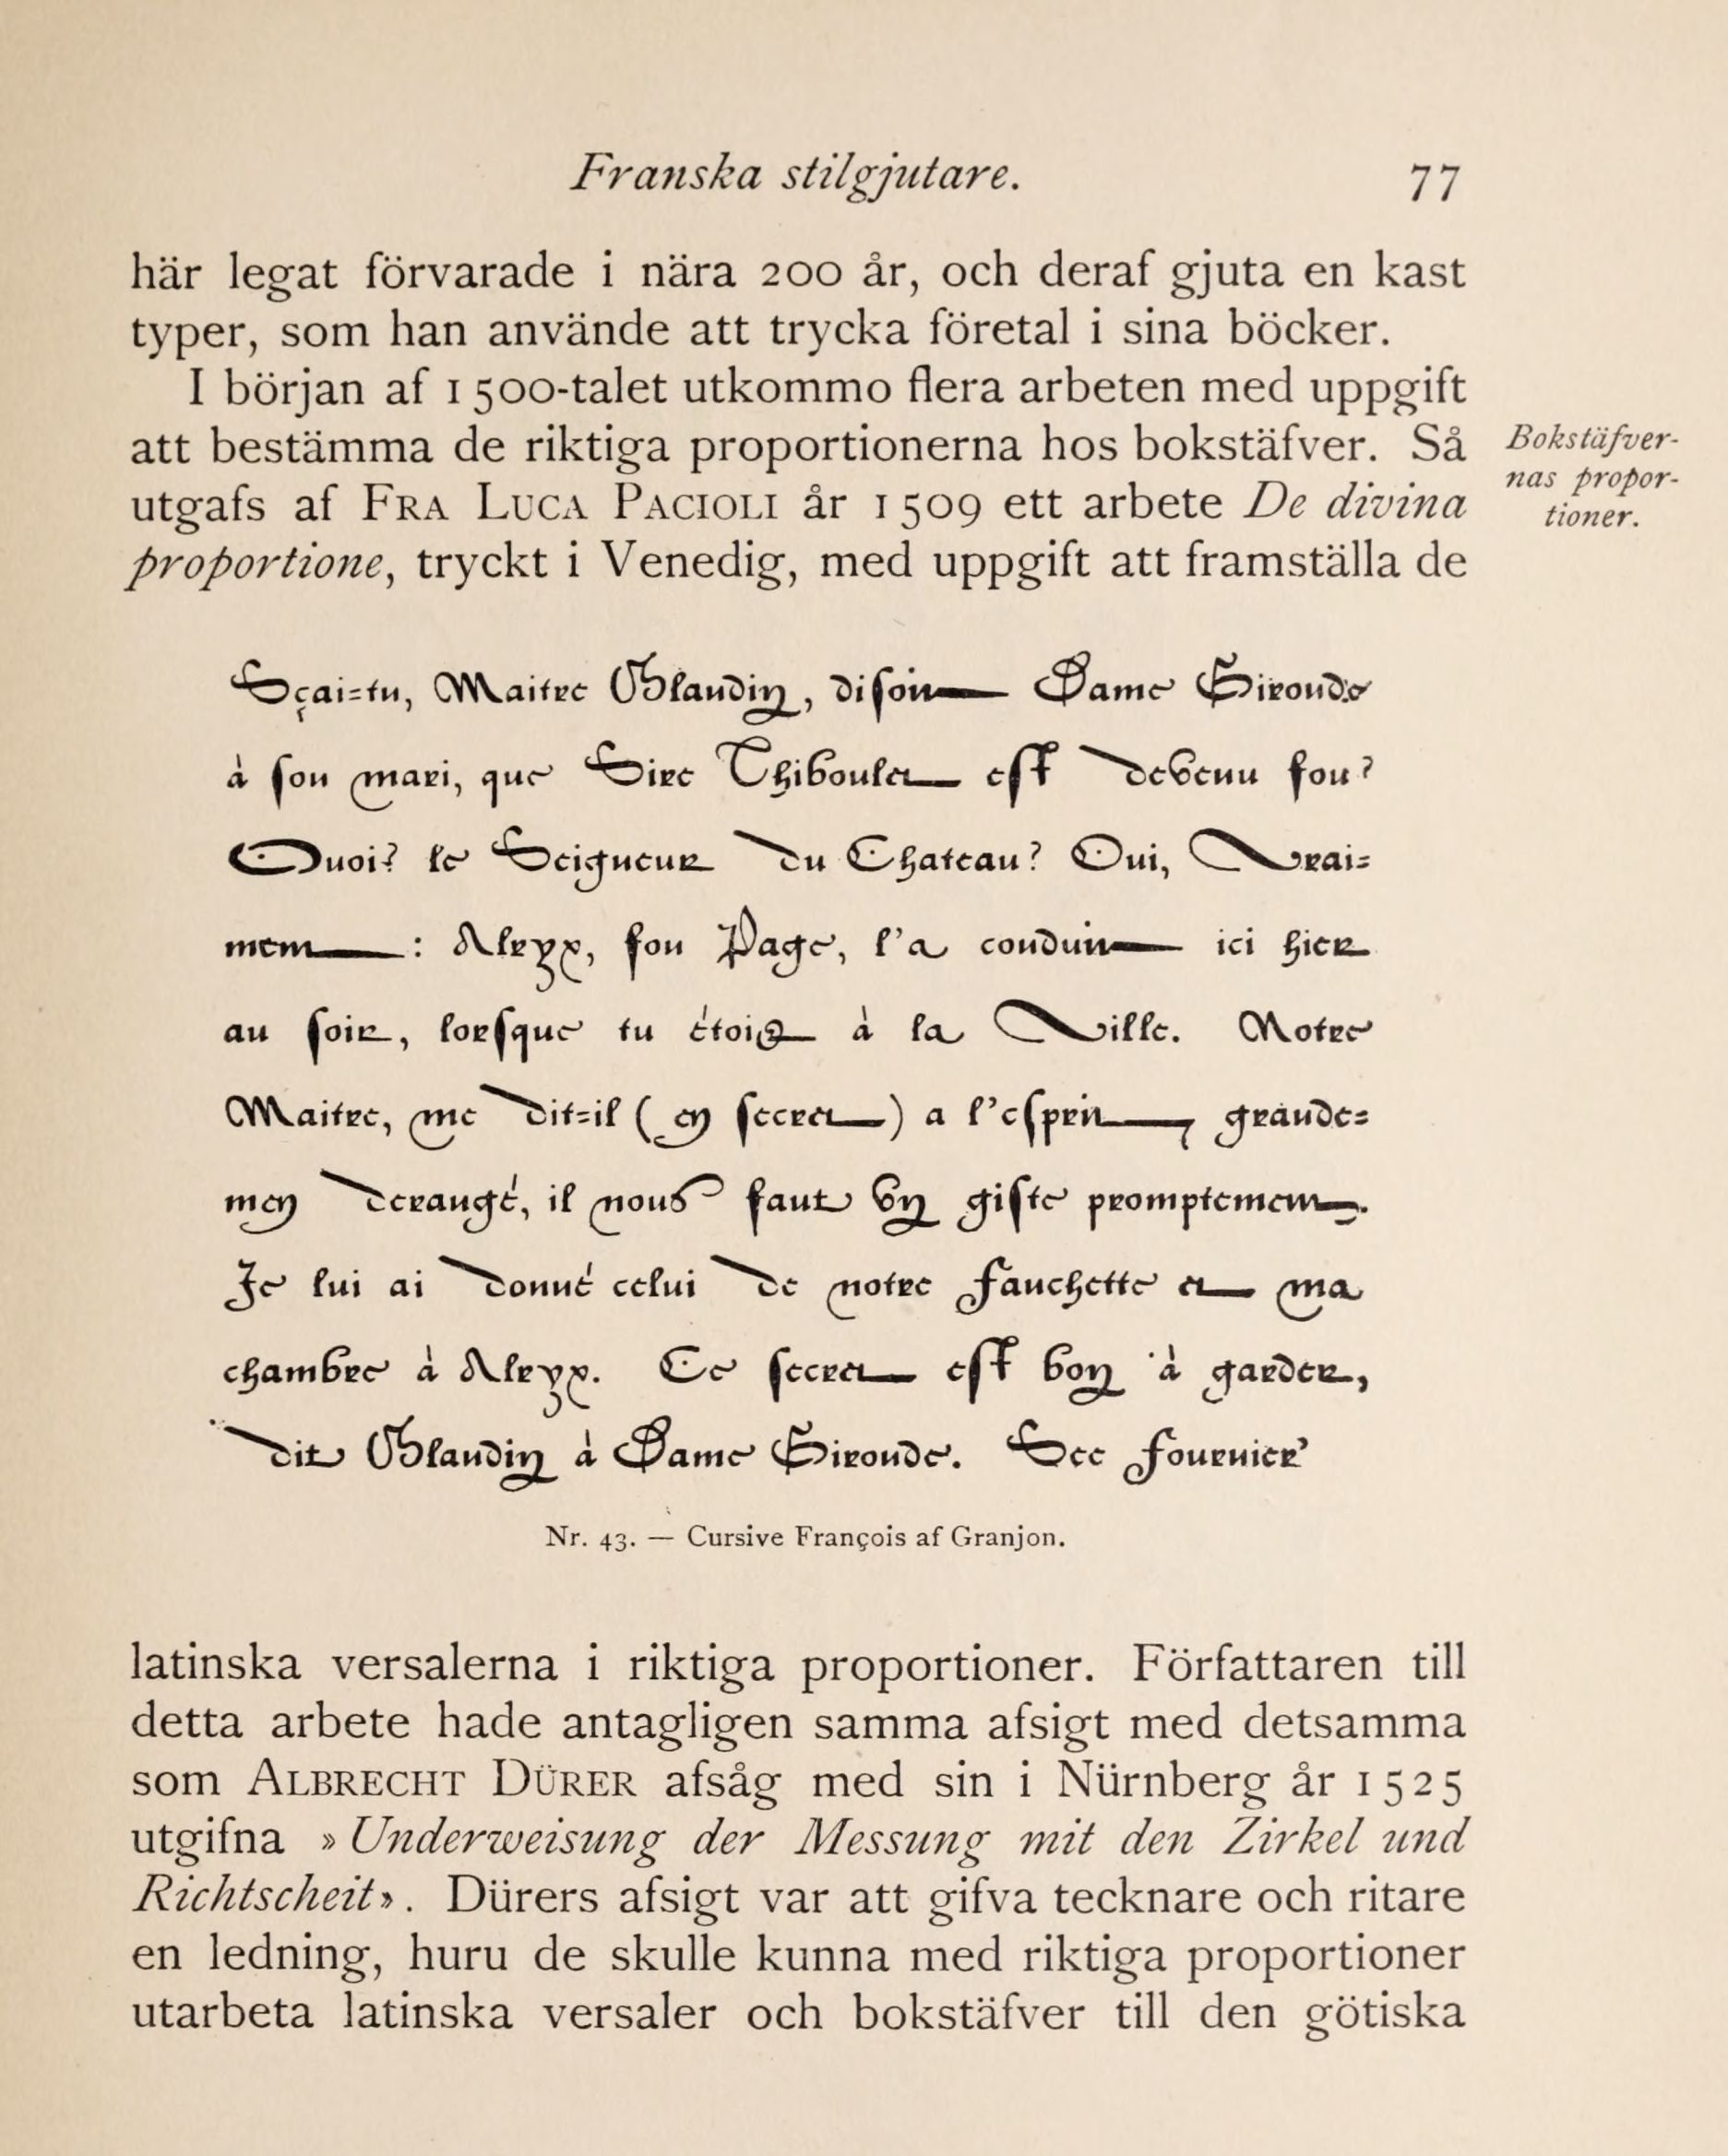 Franska stilgjutare.
77
här legat förvarade i nära 200 år, och deraf gjuta en kast
typer, som han använde att trycka företal i sina böcker.
I början af 1500-talet utkommo flera arbeten med uppgift
att bestämma de riktiga proportionerna hos bokstäfver. Så
utgafs af FRA LUCA PACIOLI år 1509 ett arbete De divina
proportione, tryckt i Venedig, med uppgift att framställa de
Bokstäfver-
nas propor-
tioner.
Sçai-tu, Maitre Blandin, disoit Dame Gironde
à son mari, que Sire Thiboulet est devenu fou?
Quoi? le Seigneur du Chateau? Oui, Vrai-
ment: Alexx, son Page, l'a conduit ici hier
au soir, lorsque tu étois à la Ville. Notre
Maitre, me dit-il (en secret) a l'esprit, grande-
men derangé, il nous faut vn giste promptement.
Je lui ai donné celui de notre fauchette et ma
chambre à Alexx. Ce secret est bon à garder,
dit Blandin à Dame Gironde. See fournier
Nr. 43. — Cursive François af Granjon.
latinska versalerna i riktiga proportioner. Författaren till
detta arbete hade antagligen samma afsigt med detsamma
som ALBRECHT DÜRER afsåg med sin i Nürnberg år 1525
utgifna »Underweisung der Messung mit den Zirkel und
Richtscheit». Dürers afsigt var att gifva tecknare och ritare
en ledning, huru de skulle kunna med riktiga proportioner
utarbeta latinska versaler och bokstäfver till den götiska